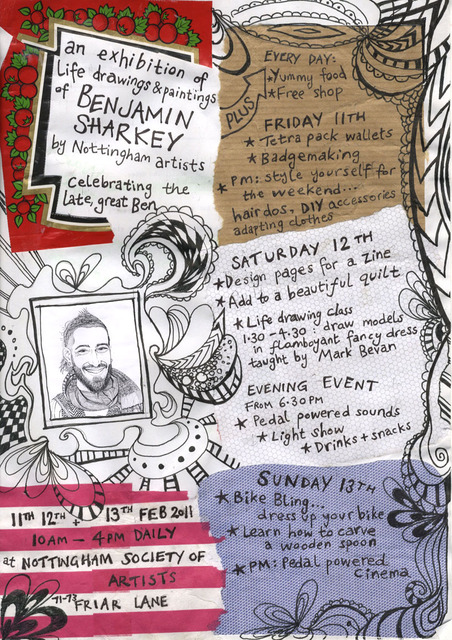 an exhibition of
Life drawings & paintings
of BENJAMIN
SHARKEY
by Nottingham artists
Celebrating the
late, great Ben
PLUS
EVERY DAY:
★ Yummy food
★ Free shop
FRIDAY 11TH
★ Tetra pack wallets
★ Badgemaking
★ PM: style yourself for
the weekend...
hairdos, DIY accessories
adapting clothes
SATURDAY 12TH
★ Design pages for a zine
★ Add to a beautiful quilt
★ Life drawing class
1.30 - 4.30: draw models
in flamboyant fancy dress
taught by Mark Bevan
EVENING EVENT
FROM 6.30PM
★ Pedal powered sounds
★ Light show
★ Drinks + snacks
SUNDAY 13TH
★ Bike Bling...
dress up your bike
★ Learn how to carve
a wooden spoon
★ PM: Pedal powered
cinema
11TH 12TH + 13TH FEB 2011
10AM - 4PM DAILY
at NOTTINGHAM SOCIETY OF
ARTISTS
71-73 FRIAR LANE